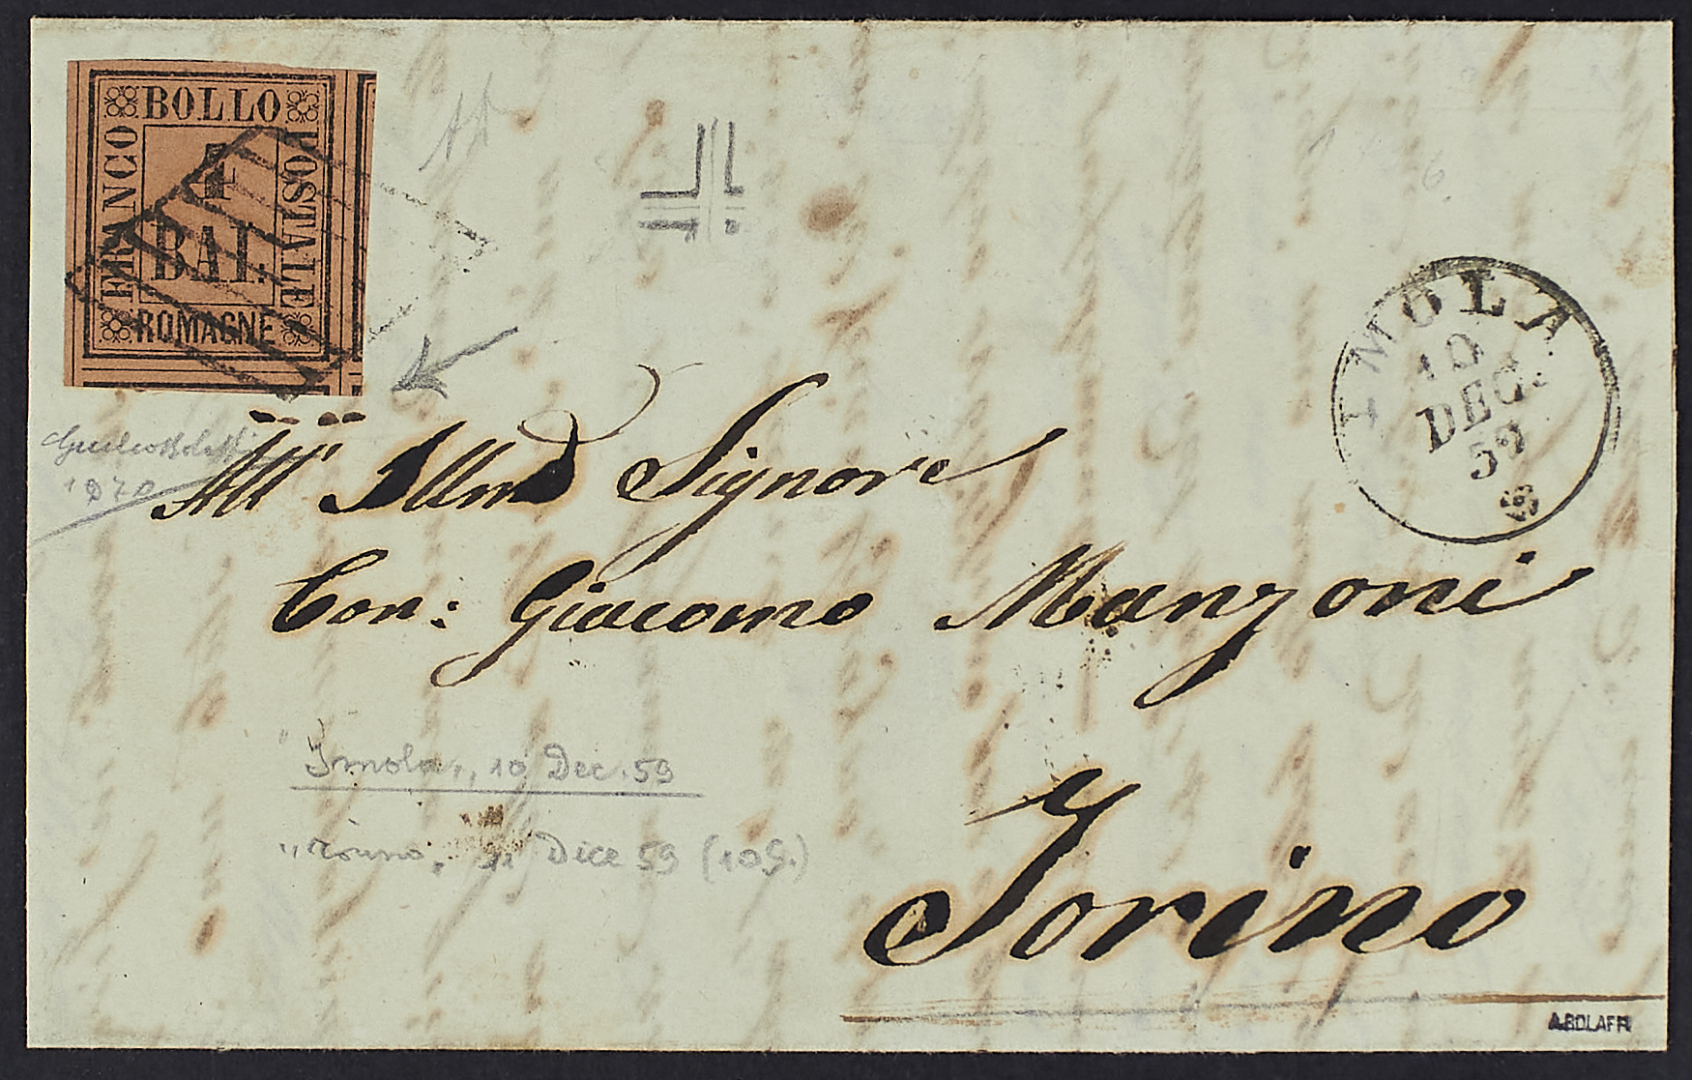 BOLLO
FRANCO
POSTALE
4
BAI.
ROMAGNE
IMOLA
10
DEC.
59
1970
All' Illmo Signore
Con: Giacomo Manzoni
Torino
"Imola" 10 Dec. 59
"Torino" 11 Dice 59 (10G.)
A.BOLAFFI